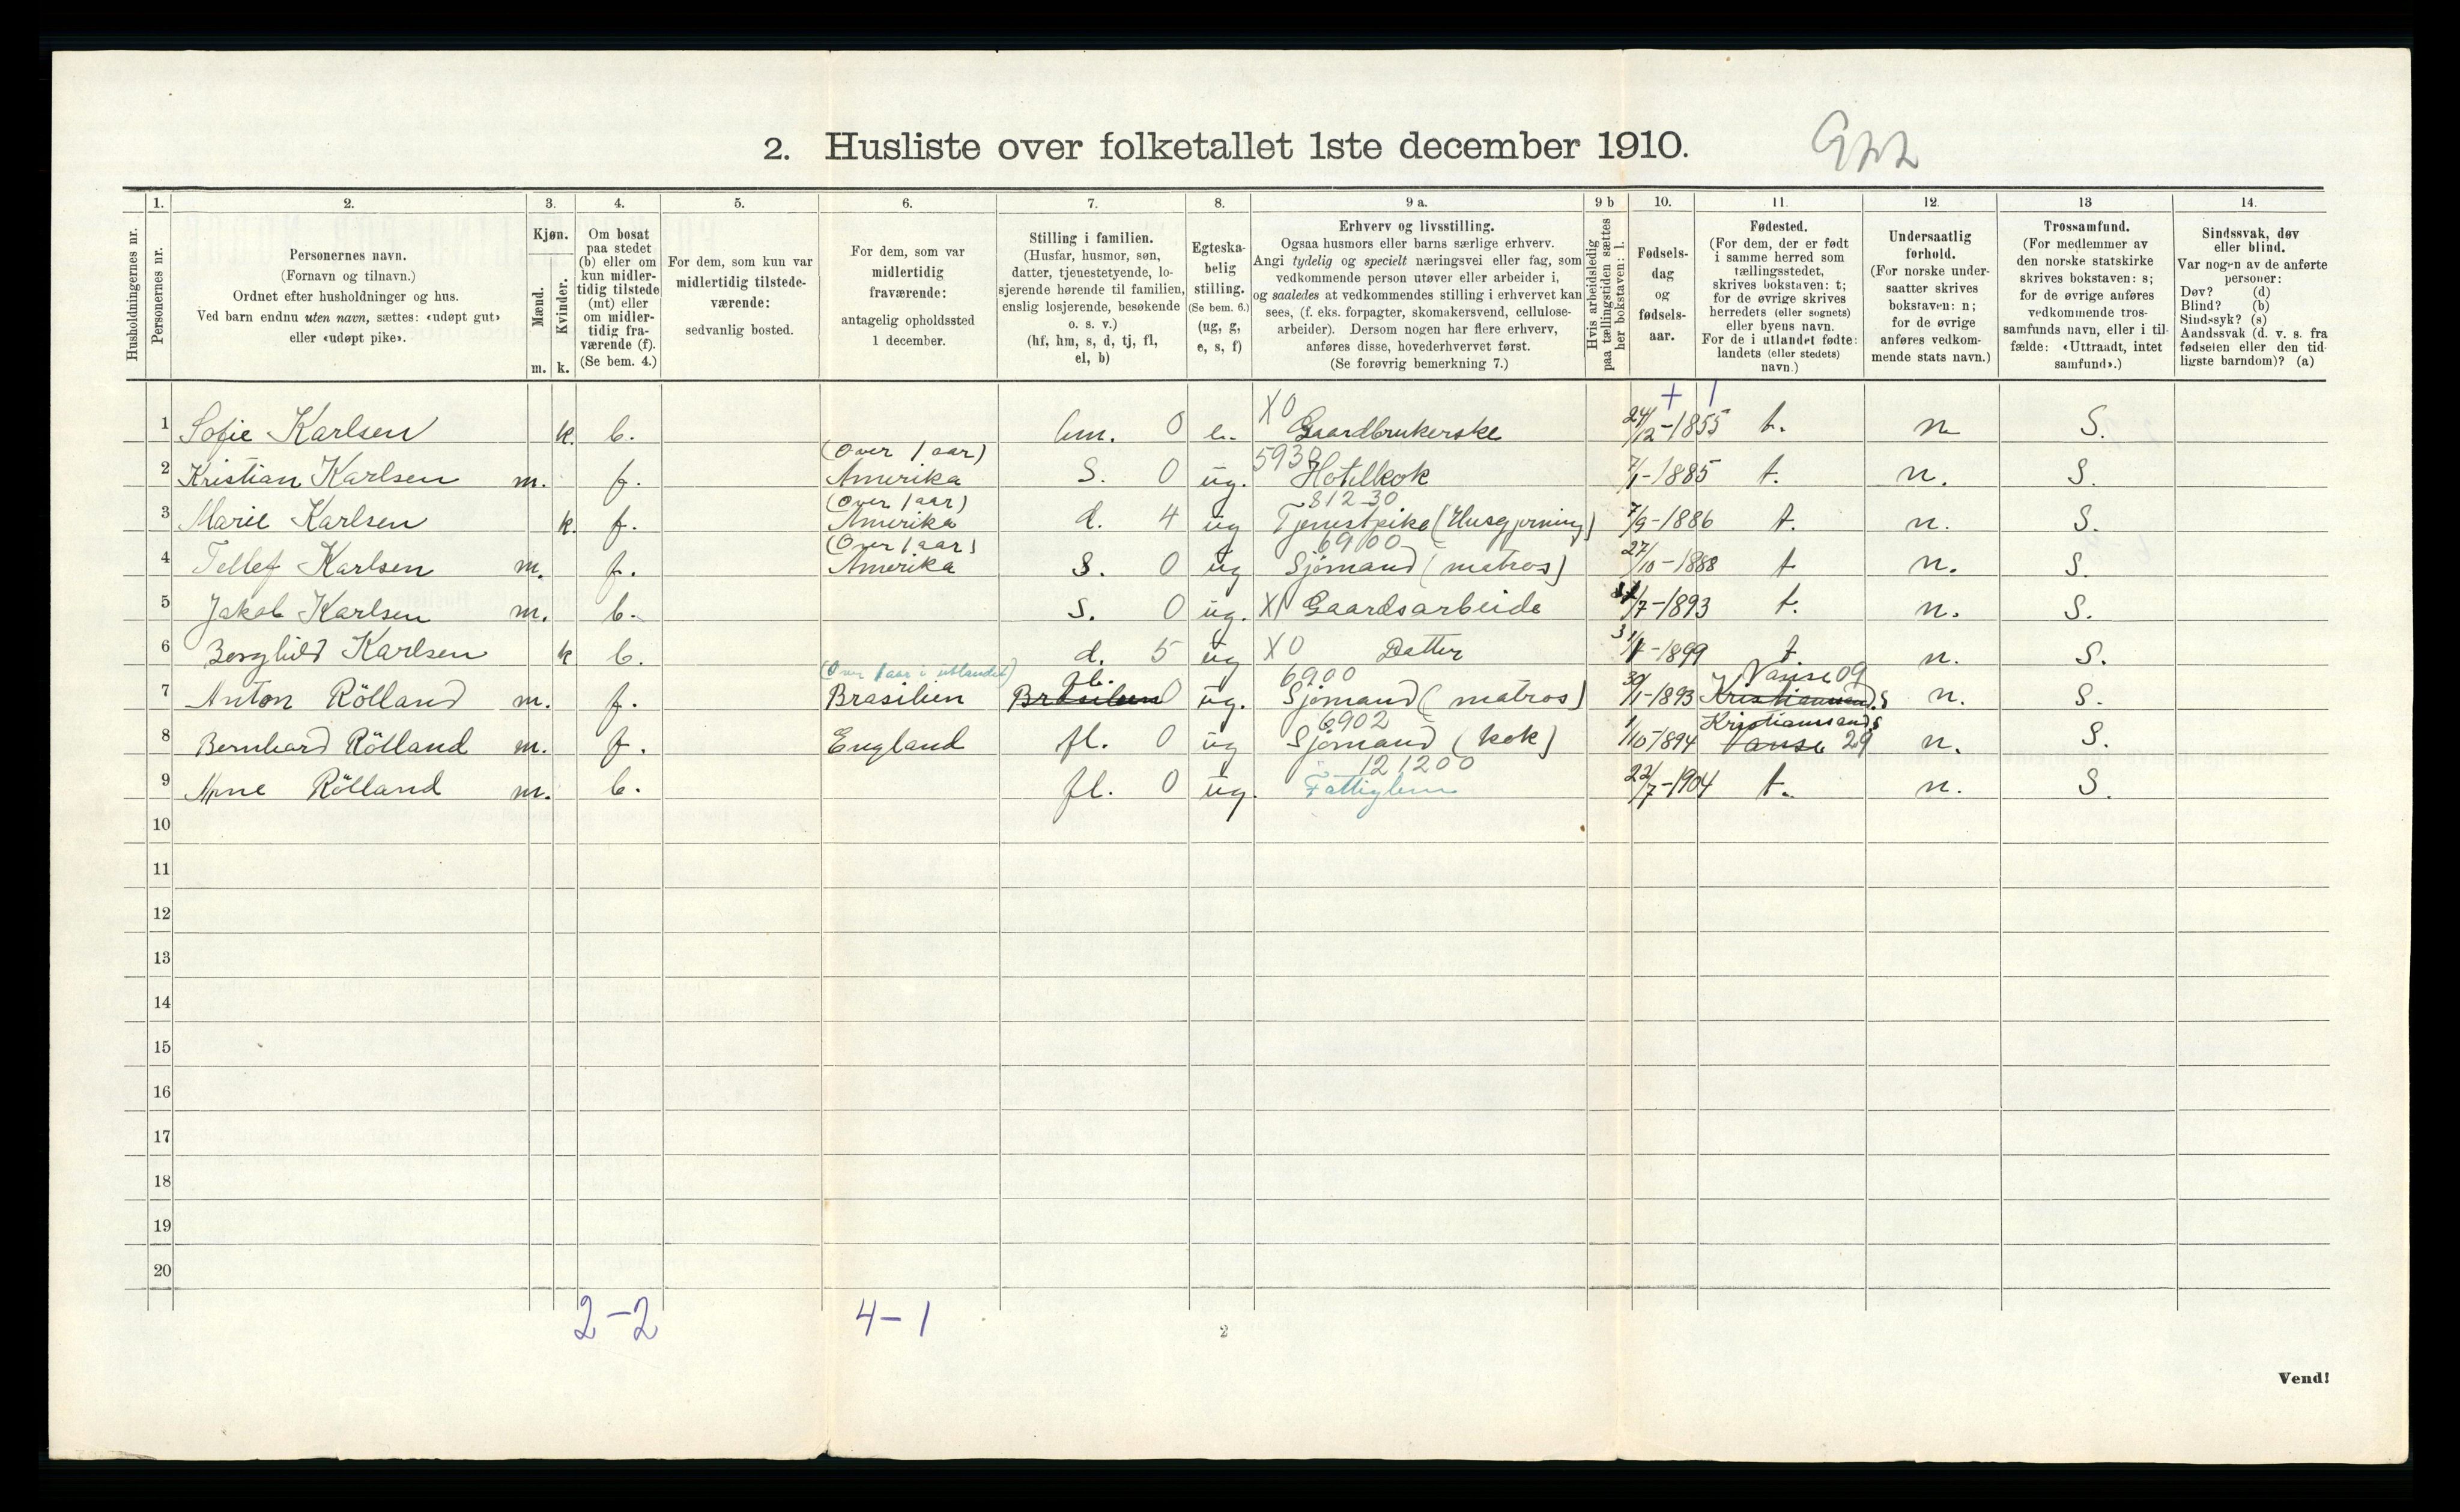 2. Husliste over folketallet 1ste december 1910.
Husholdningernes nr.
1.
Personernes nr.
2.
Personernes navn.
(Fornavn og tilnavn.)
Ordnet efter husholdninger og hus.
Ved barn endnu uten navn, sættes: «udøpt gut»
eller «udøpt pike».
3.
Kjøn.
Mænd.
Kvinder.
m. k.
4.
Om bosat
paa stedet
(b) eller om
kun midler-
tidig tilstede
(mt) eller
om midler-
tidig fra-
værende (f).
(Se bem. 4.)
5.
For dem, som kun var
midlertidig tilstede-
værende:
sedvanlig bosted.
6.
For dem, som var
midlertidig
fraværende:
antagelig opholdssted
1 december.
7.
Stilling i familien.
(Husfar, husmor, søn,
datter, tjenestetyende, lo-
sjerende hørende til familien,
enslig losjerende, besøkende
o. s. v.)
(hf, hm, s, d, tj, fl,
el, b)
8.
Egteska-
belig
stilling.
(Se bem. 6.)
(ug, g,
e, s, f)
9 a.
Erhverv og livsstilling.
Ogsaa husmors eller barns særlige erhverv.
Angi tydelig og specielt næringsvei eller fag, som
vedkommende person utøver eller arbeider i,
og saaledes at vedkommendes stilling i erhvervet kan
sees, (f. eks. forpagter, skomakersvend, cellulose-
arbeider). Dersom nogen har flere erhverv,
anføres disse, hovederhvervet først.
(Se forøvrig bemerkning 7.)
9 b
Hvis arbeidsledig
paa tællingstiden sættes
her bokstaven: l.
10.
Fødsels-
dag
og
fødsels-
aar.
11.
Fødested.
(For dem, der er født
i samme herred som
tællingsstedet,
skrives bokstaven: t;
for de øvrige skrives
herredets (eller sognets)
eller byens navn.
For de i utlandet fødte:
landets (eller stedets)
navn.)
12.
Undersaatlig
forhold.
(For norske under-
saatter skrives
bokstaven: n;
for de øvrige
anføres vedkom-
mende stats navn.)
13
Trossamfund.
(For medlemmer av
den norske statskirke
skrives bokstaven: s;
for de øvrige anføres
vedkommende tros-
samfunds navn, eller i til-
fælde: «Uttraadt, intet
samfund».)
14.
Sindssvak, døv
eller blind.
Var nogen av de anførte
personer:
Døv? (d)
Blind? (b)
Sindssyk? (s)
Aandssvak (d. v. s. fra
fødselen eller den tid-
ligste barndom)? (a)
+ 1
1 Sofie Karlsen k. b. hm. 0 e. X0 Gaardbrukerske 24/12-1855 t. n S.
2 Kristian Karlsen m. f. (Over 1 aar) Amerika S. 0 ug. Hotelkok 7/1-1885 t. n. S.
3 Marie Karlsen k. f. (Over 1 aar) Amerika d. 4 ug 812 30 Tjenestpike (Husgjerning) 7/9-1886 t. n. S.
4 Tellef Karlsen m. f. (Over 1 aar) Amerika S. 0 ug 6900 Sjømand (matros) 27/10-1888 t n. S.
5 Jakob Karlsen m. b. S. 0 ug. X1 Gaardsarbeide /7-1893 t. n. S.
6 Borghild Karlsen k b. d. 5 ug X0 Datter -1899 t. n. S.
7 Anton Rölland m. f. (Over 1 aar i utlandet) Brasilien Brasilien fl. 0 ug. 6900 Sjømand (matros) 30/1-1893 Kristianssand.s Vanse 09 n. S.
8 Bernhard Rölland m. f. England fl. 0 ug 6902 Sjømand (kok) 1/10-1894 Kristianssands Vanse 29 n. S.
9 Arne Rölland m. b. fl. 0 ug. 121200 Fattiglem 22/7-1904 t. n. S.
10
11
12
13
14
15
16
17
18
19
20
2-2
4-1
2
Vend!